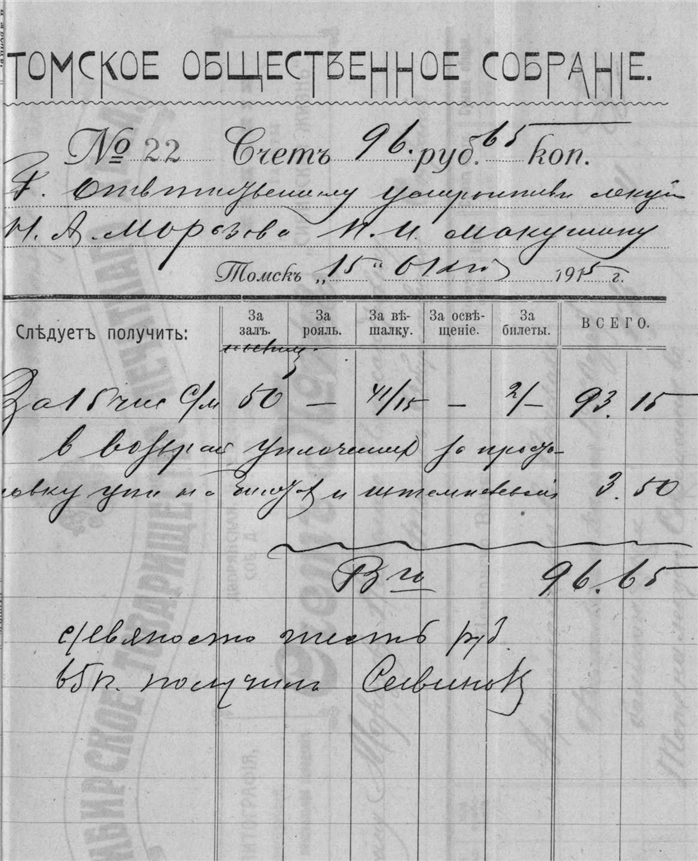 ТОМСКОЕ ОБЩЕСТВЕННОЕ СОБРАНІЕ.
№ 22 Счетъ 96. руб. 65 коп.
Г. Отвѣтственному устроителю лекціи
Н. А. Морозова П. И. Макушину
Томскъ „15“ 1915 г.
Слѣдуетъ получить: За залъ. За рояль. За вѣшалку. За освѣщеніе. За билеты. ВСЕГО.
За 15 чис с/м 50 — 41/15 — 2/— 93. 15
в возврат уплоченных за
и 3. 50
В го 96. 65
девяносто шесть руб.
65 к. получил